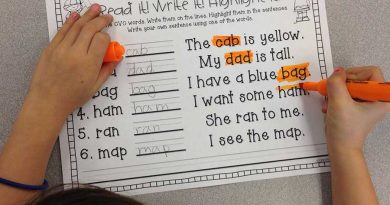 Read It! Write It! Highlight
CVC words. Write them on the lines! Highlight them in the sentences.
Write your own sentence using one of the words.
cab
dad
bag bag
4. ham ham
5. ran ran
6. map map
The cab is yellow.
My dad is tall.
I have a blue bag.
I want some ham.
She ran to me.
I see the map.